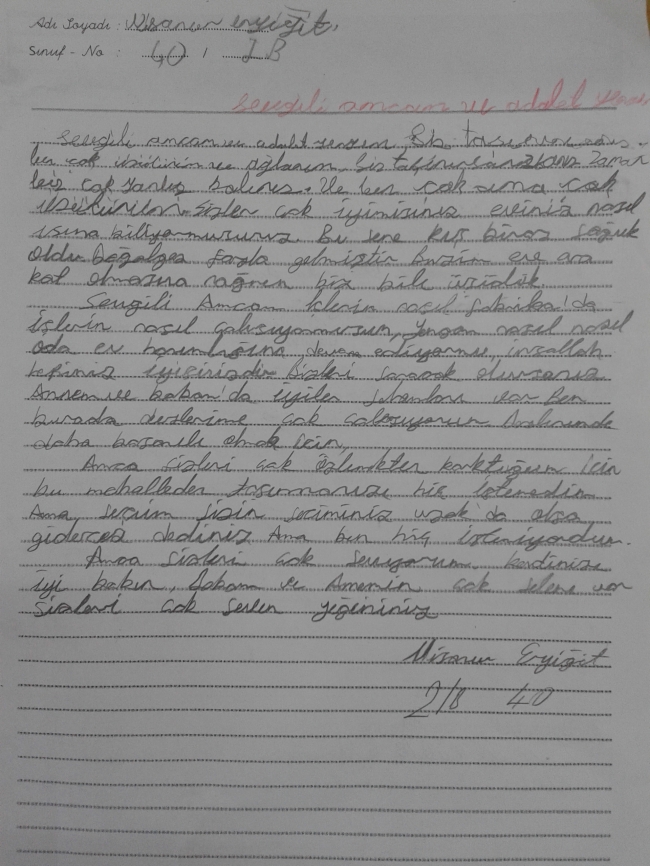 Adı Soyadı: Nisanur eryiğit.
Sınıf - No: 40 / 2B
sevgili amcam ve adalet
sevgili amcam ve adalet yengem, Siz
ben çok üzülürüm ve ağlarım, Siz
biz çok yanlız kalırız. Ve ben cok ama cok
Sizler çok iyimisiniz eviniz nasıl
ısına biliyormusunuz. Bu sene kış biraz soğuk
oldu Doğalgaz fazla gelmiştir bizim eve ara
kat olmasına rağmen biz bile üsüdük.
Sevgili Amcam işlerin nasıl fabrika'da
işlerin nasıl çalışıyormusun, yengem nasıl nasıl
oda ev hanımlığına devam ediyormu, inşallah
hepiniz iyisinizdir Bizleri soracak olursanız
Annem ve babam'da iyiler selamları var Ben
burada derslerime çok çalışıyorum
daha başarılı olmak için,
Amca sizleri çok özlemekten korktuğum için
bu mahalleden taşınmanızı hiç istemedim
Ama, seçim sizin seçiminiz uzak'da olsa
gidecez dediniz Ama ben hiç istemiyordum.
Amca sizleri çok seviyorum, kendinize
iyi bakın, Babam ve Annemin çok selamı var
Sizleri çok seven yeğeniniz
Nisanur Eryiğit
2/B 40